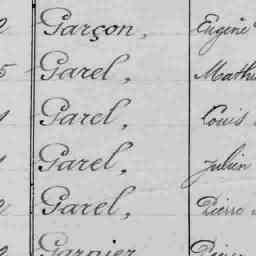 Garçon, Eugène
Garel,
Garel, Louis
Garel, Julien
Garel, Pierre
Garnier